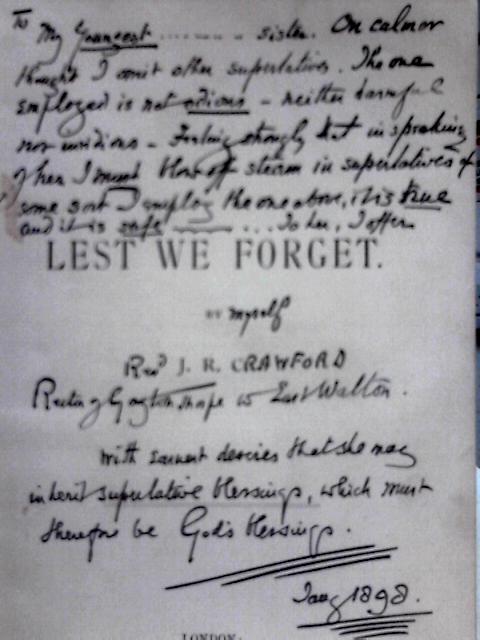 To My Youngest ......... sister. On calmer
thought I omit other superlatives. The one
employed is not odious – neither harmful
nor invidious – Feeling strongly that in speaking
of her I must blow off steam in superlatives of
some sort I employ the one above, it is true
and it is safe ——— .... To her, I offer
LEST WE FORGET.
BY myself
Revd J. R. CRAWFORD
Rector of Gayton Thorpe w East Walton.
with earnest desires that she may
inherit superlative blessings, which must
therefore be God's blessings.
Jany 1898.
LONDON: